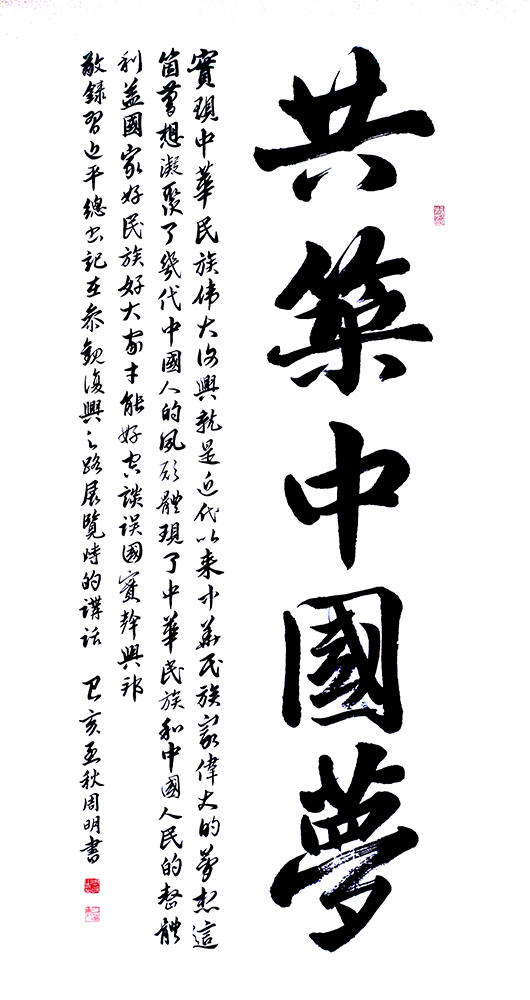 共築中國夢
實現中華民族伟大復興就是近代以来中華民族最偉大的夢想這
箇夢想凝聚了幾代中國人的夙願體現了中華民族和中國人民的整體
利益國家好民族好大家才能好空談误國實幹興邦
敬録習近平總书記在参觀復興之路展覽時的講話 己亥孟秋周明書